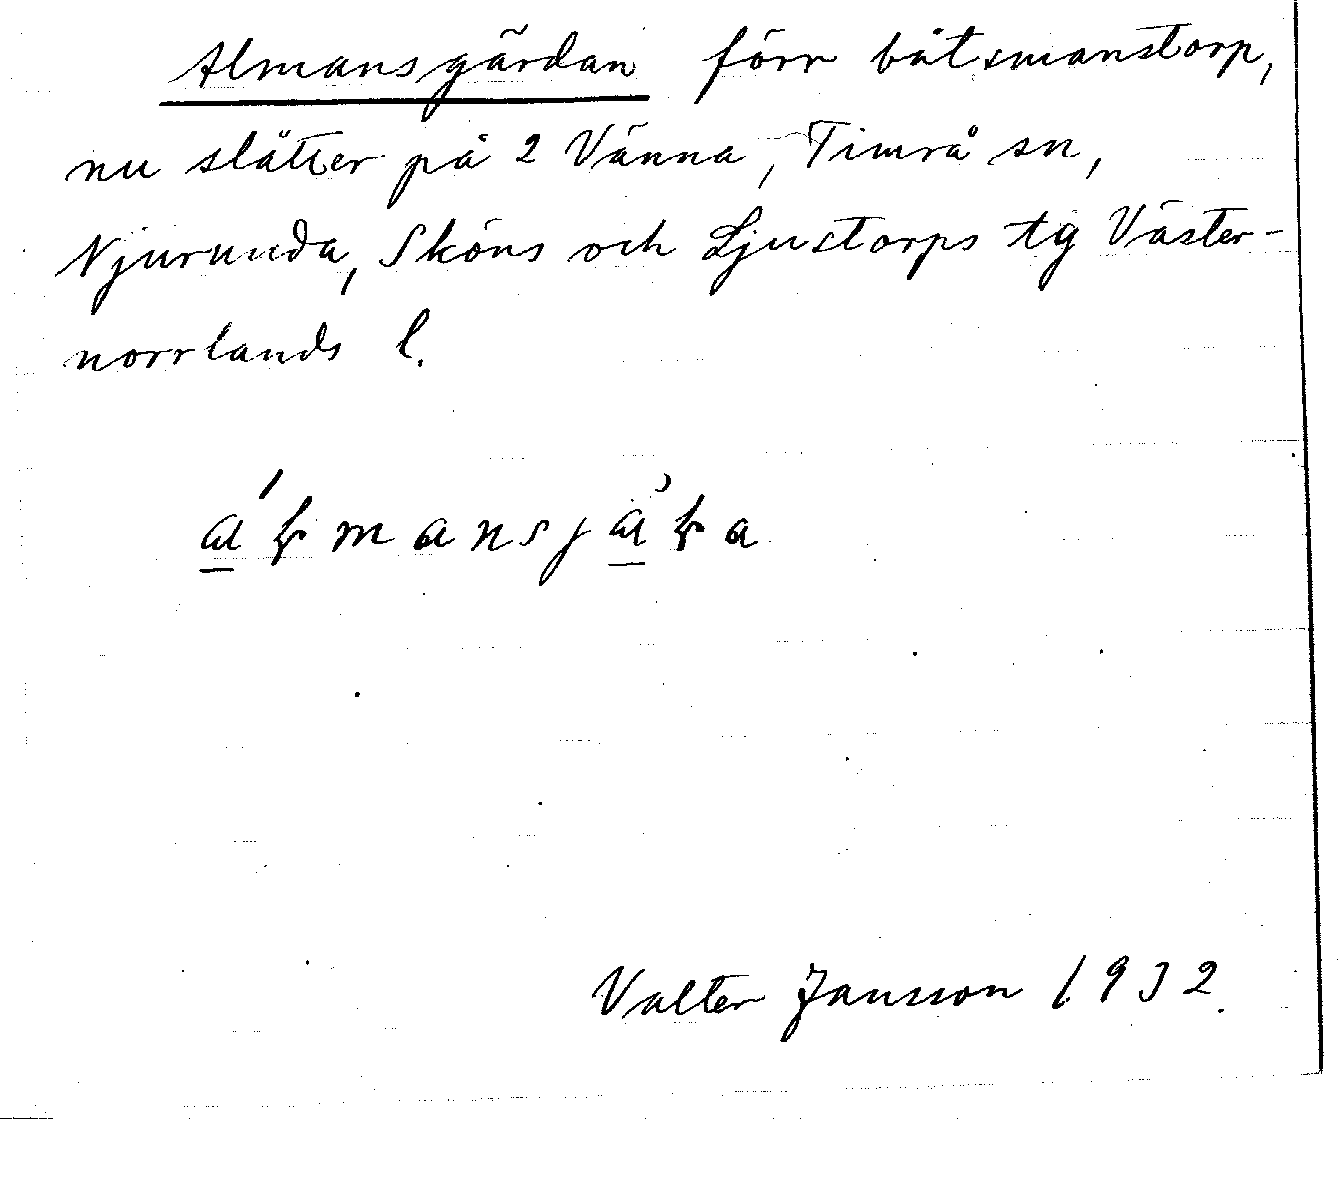 Almansgärdan förr båtsmanstorp,
nu slätter på 2 Vänna, Timrå sn,
Njurunda, Sköns och Ljustorps tg Väster-
norrlands l.
Valter Jansson 1932.